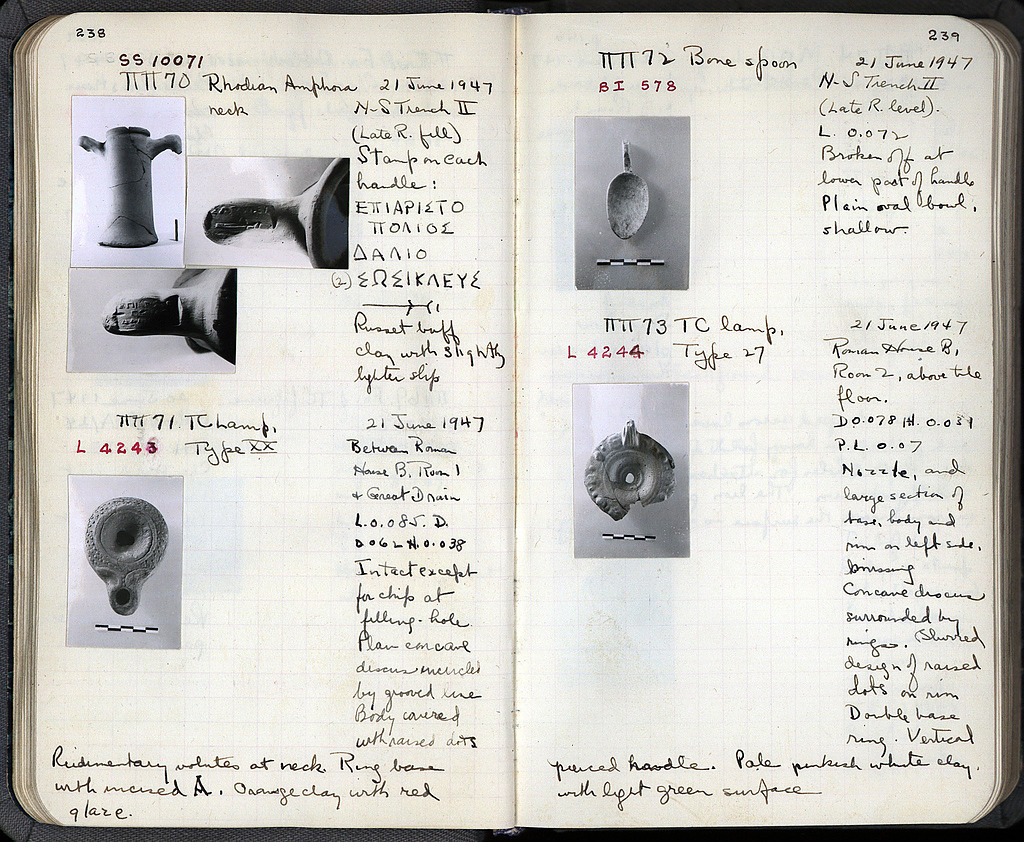 238
SS 10071
ΠΠ 70 Rhodian Amphora 21 June 1947
neck N-S Trench II
(Late R. fill)
Stamp on each
handle:
ΕΠΙΑΡΙΣΤΟ
ΠΟΛΙΟΣ
ΔΑΛΙΟ
(2) ΣΩΣΙΚΛΕΥΣ
Russet buff
clay with slightly
lighter slip
ΠΠ 71. TC lamp, 21 June 1947
L 4243 Type XX
Between Roman
House B, Room 1
+ Great Drain
L. 0.085. D.
0.062 H. 0.038
Intact except
for chip at
filling-hole.
Plain concave
discus encircled
by grooved line
Body covered
with raised dots
Rudimentary volutes at neck. Ring base
with incised A. Orange clay with red
glaze.
239
ΠΠ 72 Bone spoon 21 June 1947
BI 578 N-S Trench II
(Late R. level).
L. 0.072
Broken off at
lower part of handle
Plain oval bowl,
shallow.
ΠΠ 73 TC lamp, 21 June 1947
L 4244 Type 27
Roman House B,
Room 2, above tile
floor.
D 0.078 H. 0.031
P.L. 0.07
Nozzle, and
large section of
base, body and
rim on left side,
missing
Concave discus
surrounded by
rings. Slurred
design of raised
dots on rim
Double base
ring. Vertical
pierced handle. Pale pinkish white clay,
with light green surface